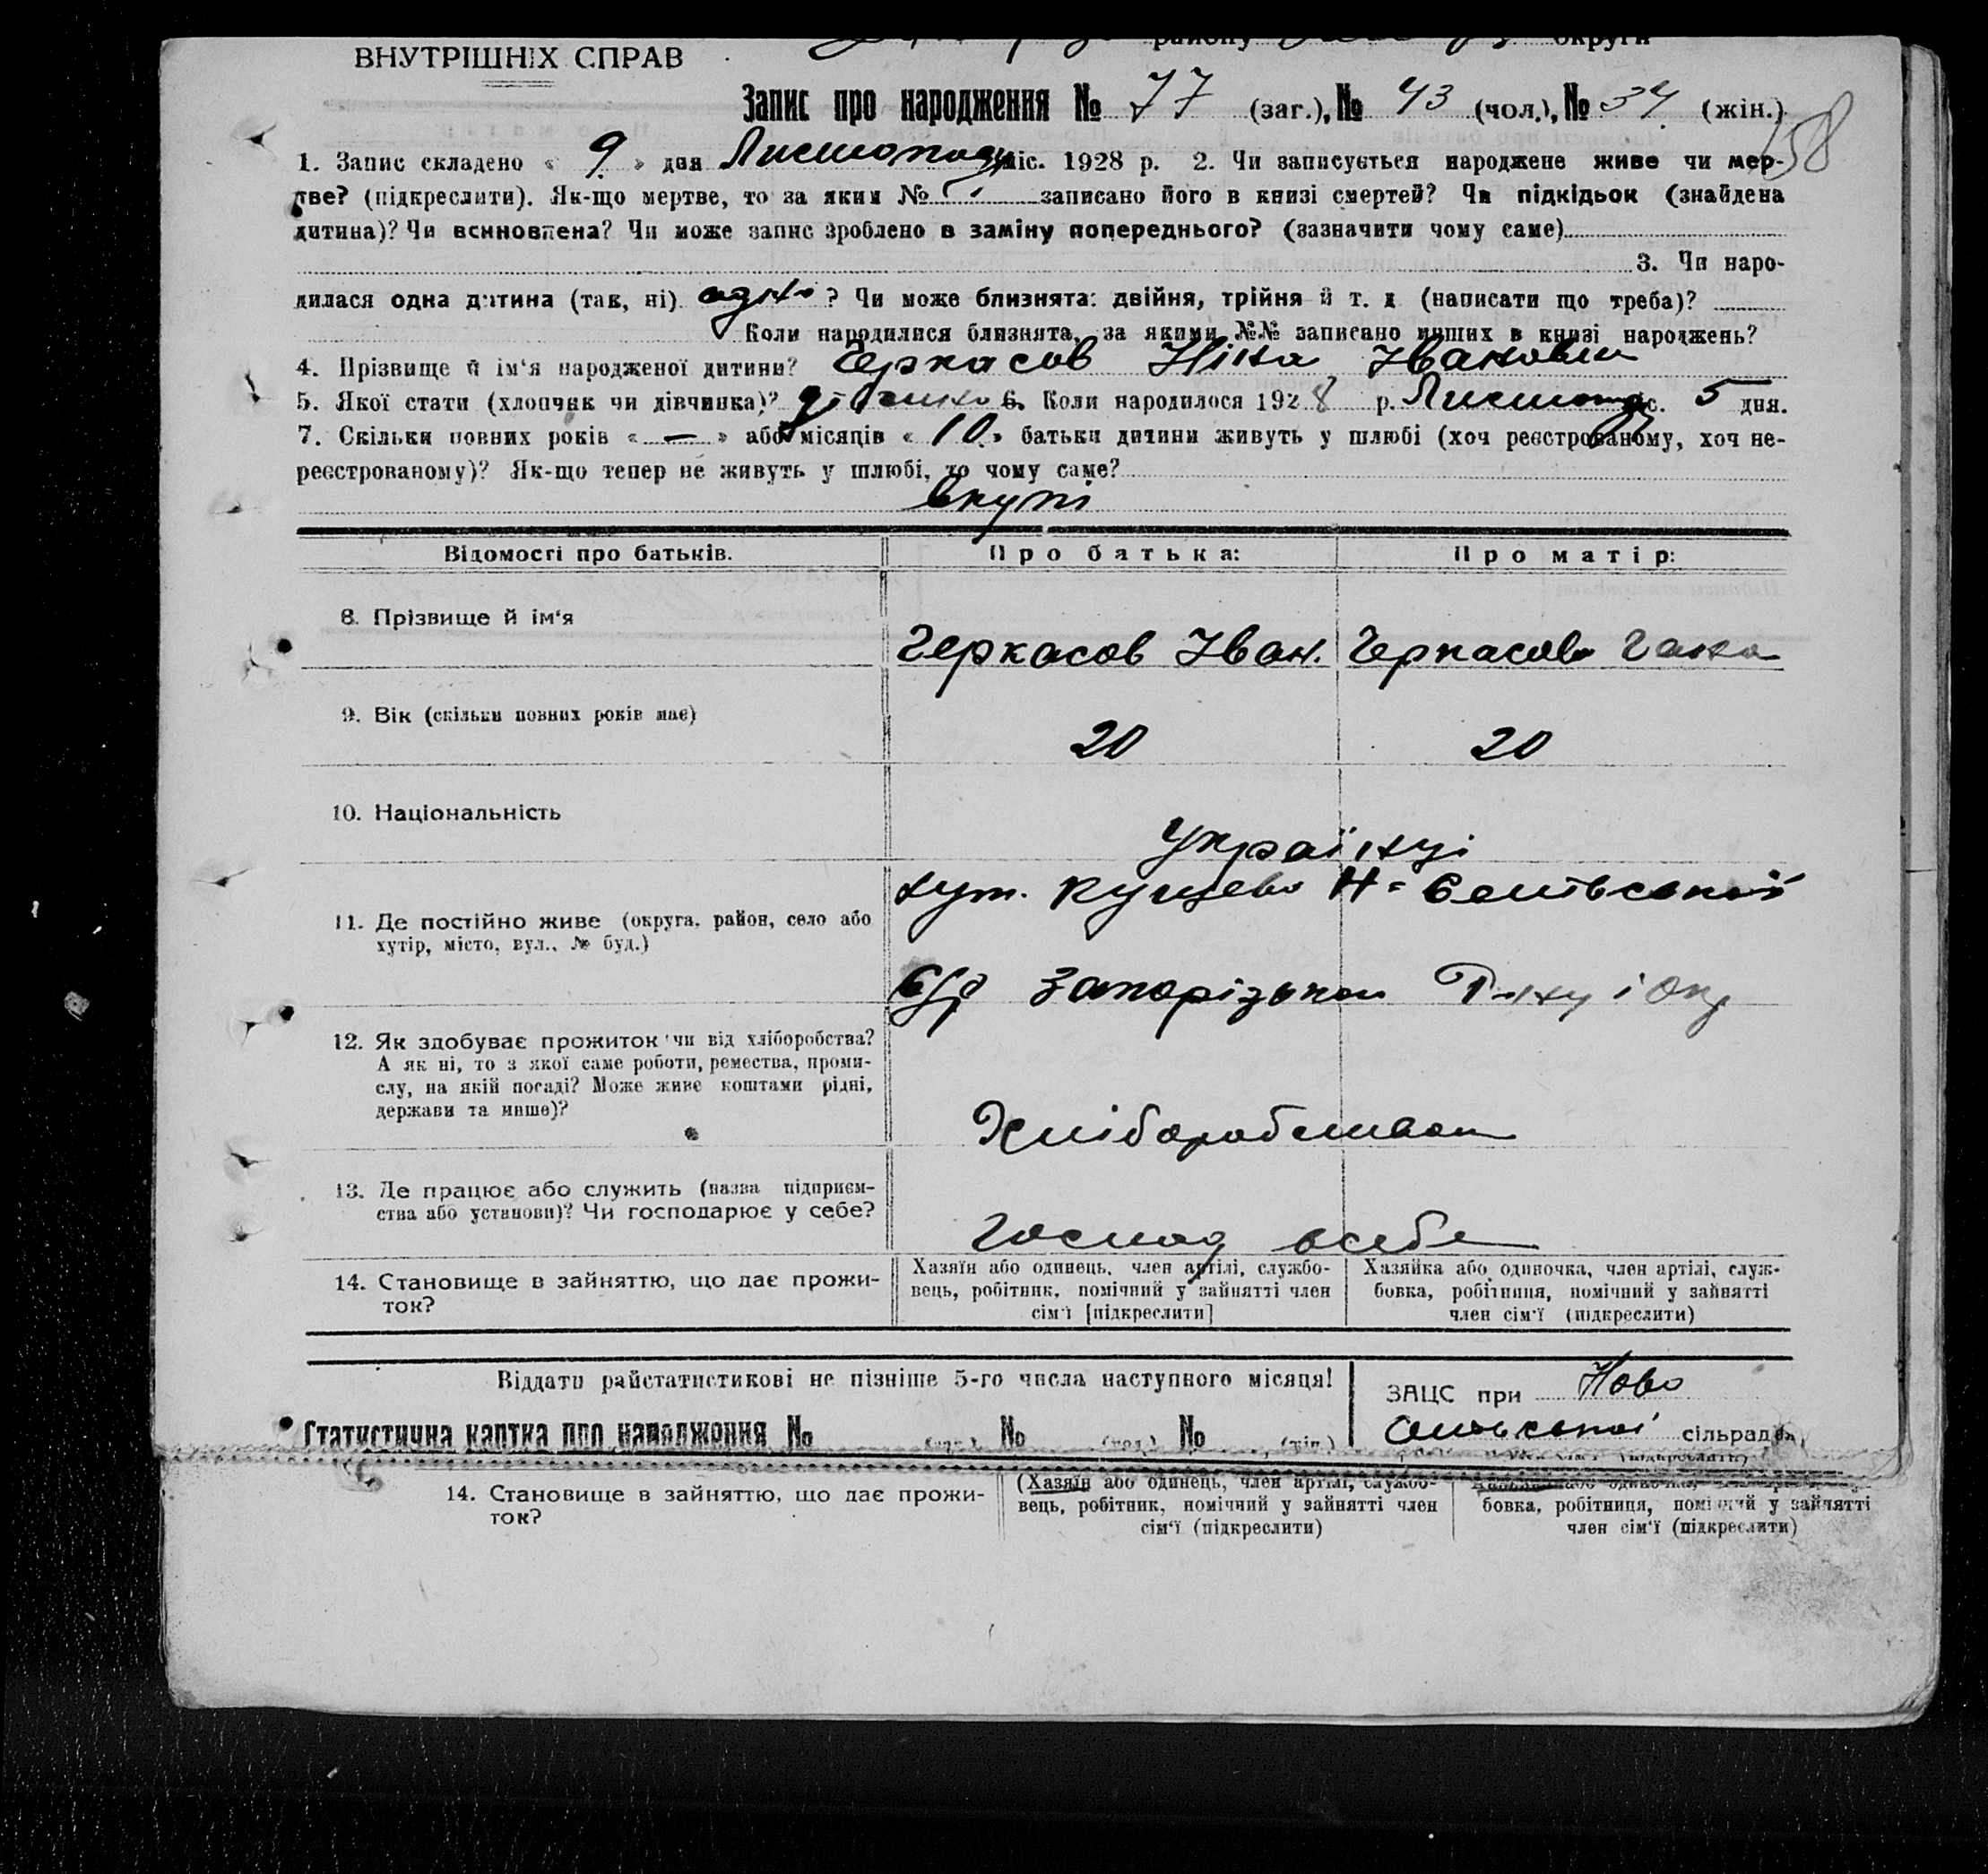 ВНУТРІШНІХ СПРАВ району округи
Запис про народження № 77 (заг.), № 43 (чол.), № 34 (жін.)
158
1. Запис складено « 9 » дня Листопаду міс. 1928 р. 2. Чи записується народжене живе чи мер-
тве? (підкреслити). Як-що мертве, то за яким № записано його в книзі смертей? Чи підкідьок (знайдена
дитина)? Чи всиновлена? Чи може запис зроблено в заміну попереднього? (зазначити чому саме)
3. Чи наро-
дилася одна дитина (так, ні) одна ? Чи може близнята: двійня, трійня й т. д (написати що треба)?
Коли народилися близнята, за якими №№ записано инших в книзі народжень?
4. Прізвище й ім‘я народженої дитини? Черкасов Ніна Івановна
5. Якої стати (хлопчик чи дівчинка)? 6. Коли народилося 1928 р. Листопад с. 5 дня.
7. Скільки повних років « — » або місяців « 10 » батьки дитини живуть у шлюбі (хоч реєстрованому, хоч не-
реєстрованому)? Як-що тепер не живуть у шлюбі, то чому саме?
вкупі
Відомості про батьків. Про батька: Про матір:
8. Прізвище й ім‘я
Черкасов Іван. Черкасова Ганна
9. Вік (скільки повних років має)
20 20
10. Національність
Українці
хут. Н=
11. Де постійно живе (округа, район, село або
хутір, місто, вул., № буд.)
С/р Запорізькой Рну і Окр
12. Як здобуває прожиток чи від хліборобства?
А як ні, то з якої саме роботи, ремества, проми-
слу, на якій посаді? Може живе коштами рідні,
держави та инше)?
Хліборобством
13. Де працює або служить (назва підприєм-
ства або установи)? Чи господарює у себе?
Господ всебе
14. Становище в зайняттю, що дає прожи-
ток?
Хазяїн або одинець, член артілі, службо-
вець, робітник, помічний у зайнятті член
сім‘ї [підкреслити]
Хазяйка або одиночка, член артілі, служ-
бовка, робітниця, помічний у зайнятті
член сім‘ї (підкреслити)
Віддати райстатистикові не пізніше 5-го числа наступного місяця!
ЗАЦС при Ново
Статистична картка про народження № № №
сільраді
14. Становище в зайняттю, що дає прожи-
ток?
(Хазяїн або одинець, член артілі, службо-
вець, робітник, помічний у зайнятті член
сім‘ї (підкреслити)
бовка, робітниця, помічний у зайнятті
член сім‘ї (підкреслити)